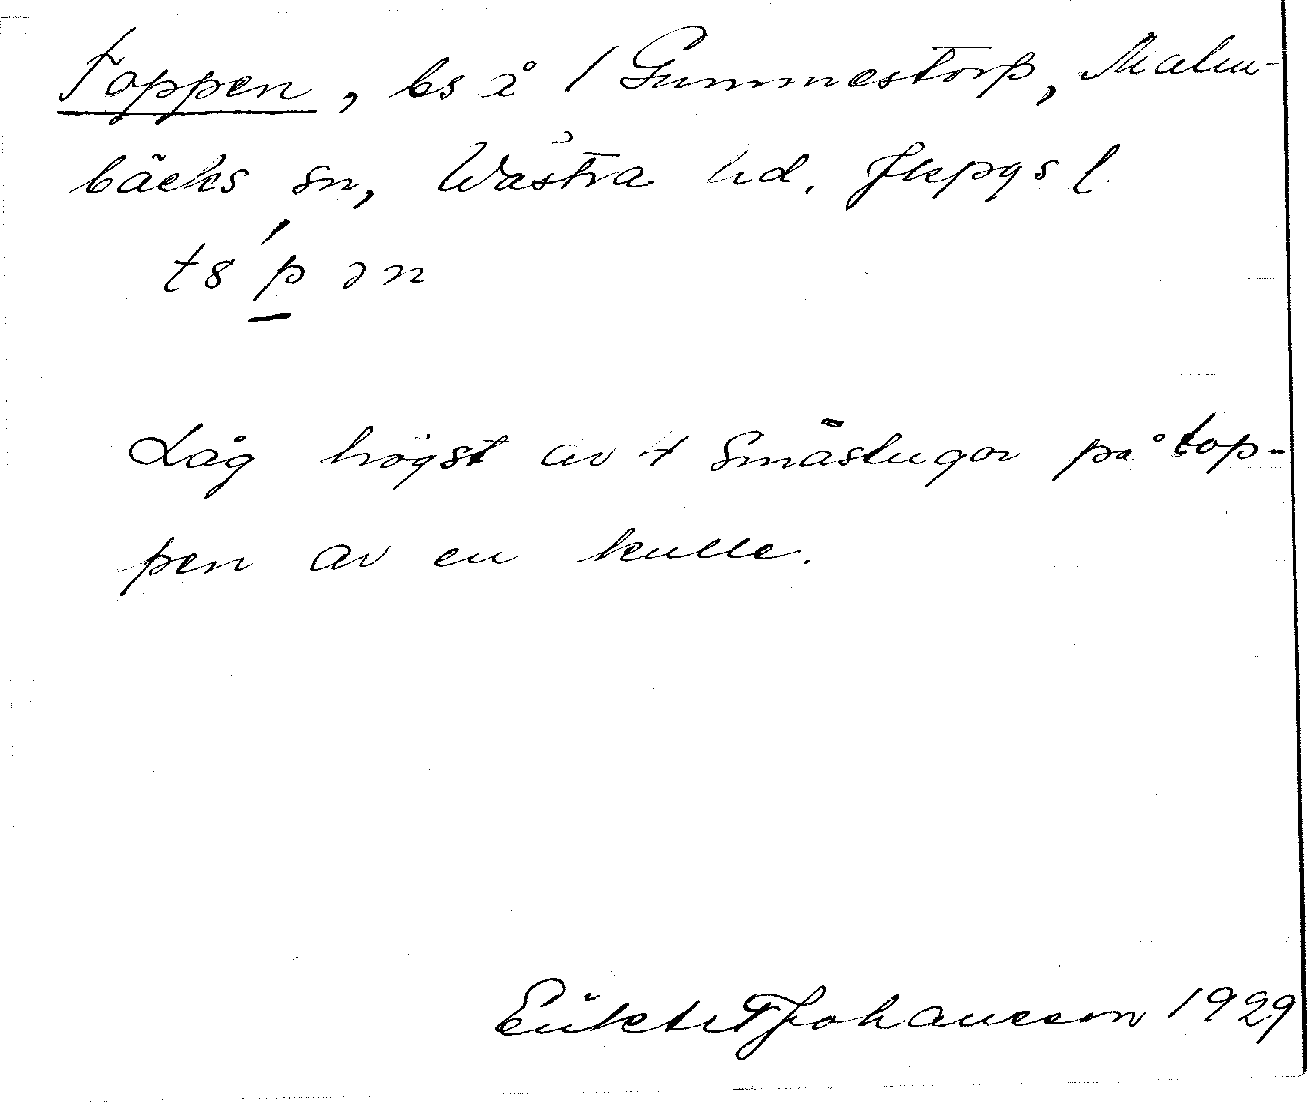 Toppen, bs å 1 Gummestorp, Malm-
bäcks sn, Västra hd. Jkpgs l.
t8́p̱ ən
Låg högst av 4 småstugor på top-
pen av en kulle.
Johansson 1929